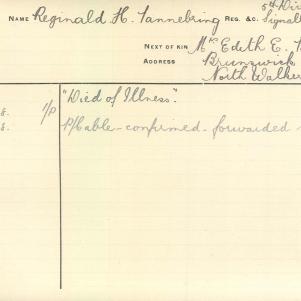 5th Div
NAME Reginald H. Tannebring REG. &c. Signall
NEXT OF KIN Mrs Edith E.
ADDRESS Brunswick
North Walker
1/P "Died of Illness".
P/Cable - confirmed - forwarded